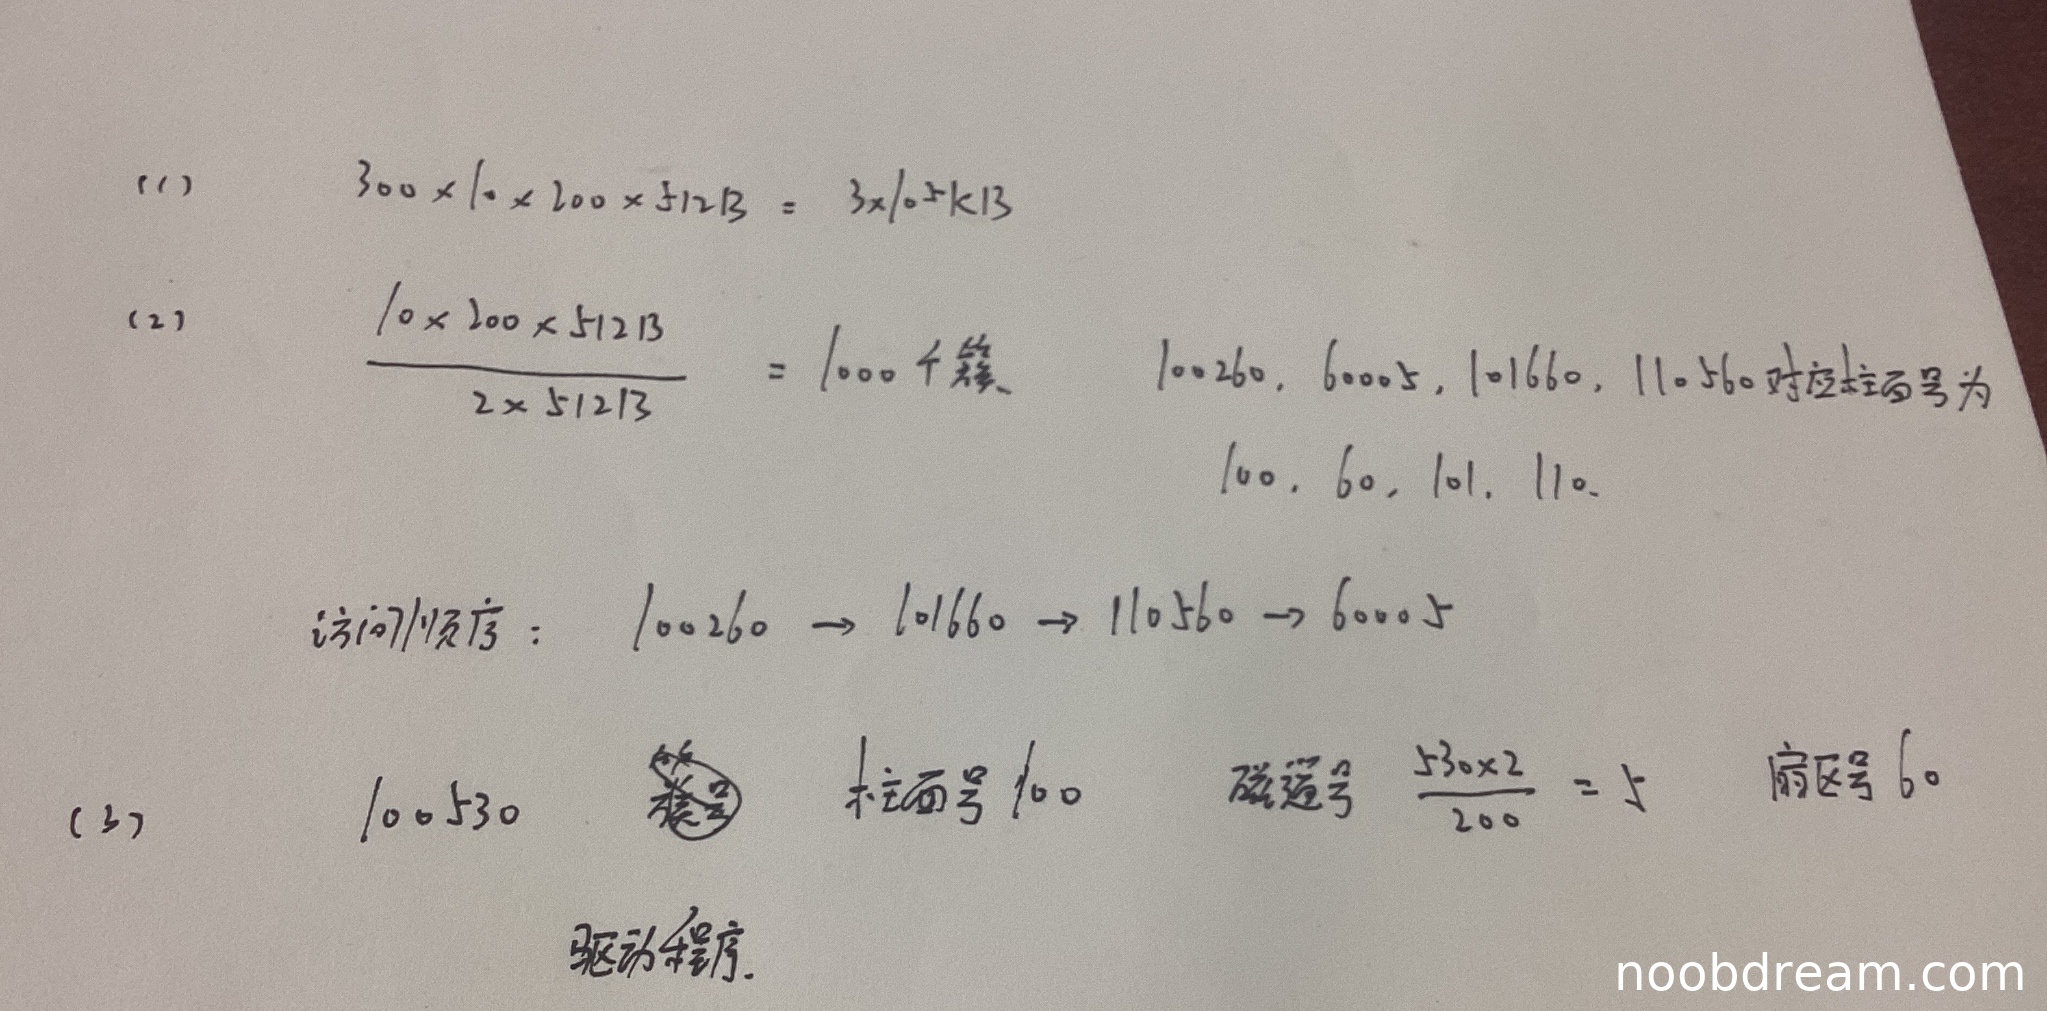 (1) 300×10×200×512B = 3×10⁵KB
(2) 10×200×512B / 2×512B = 1000个簇、 100260, 60005, 101660, 110560对应柱面号为
100, 60, 101, 110.
访问顺序: 100260 → 101660 → 110560 → 60005
(3) 100530 柱面号100 磁道号 530×2 / 200 = 5 扇区号60
驱动程序.
noobdream.com